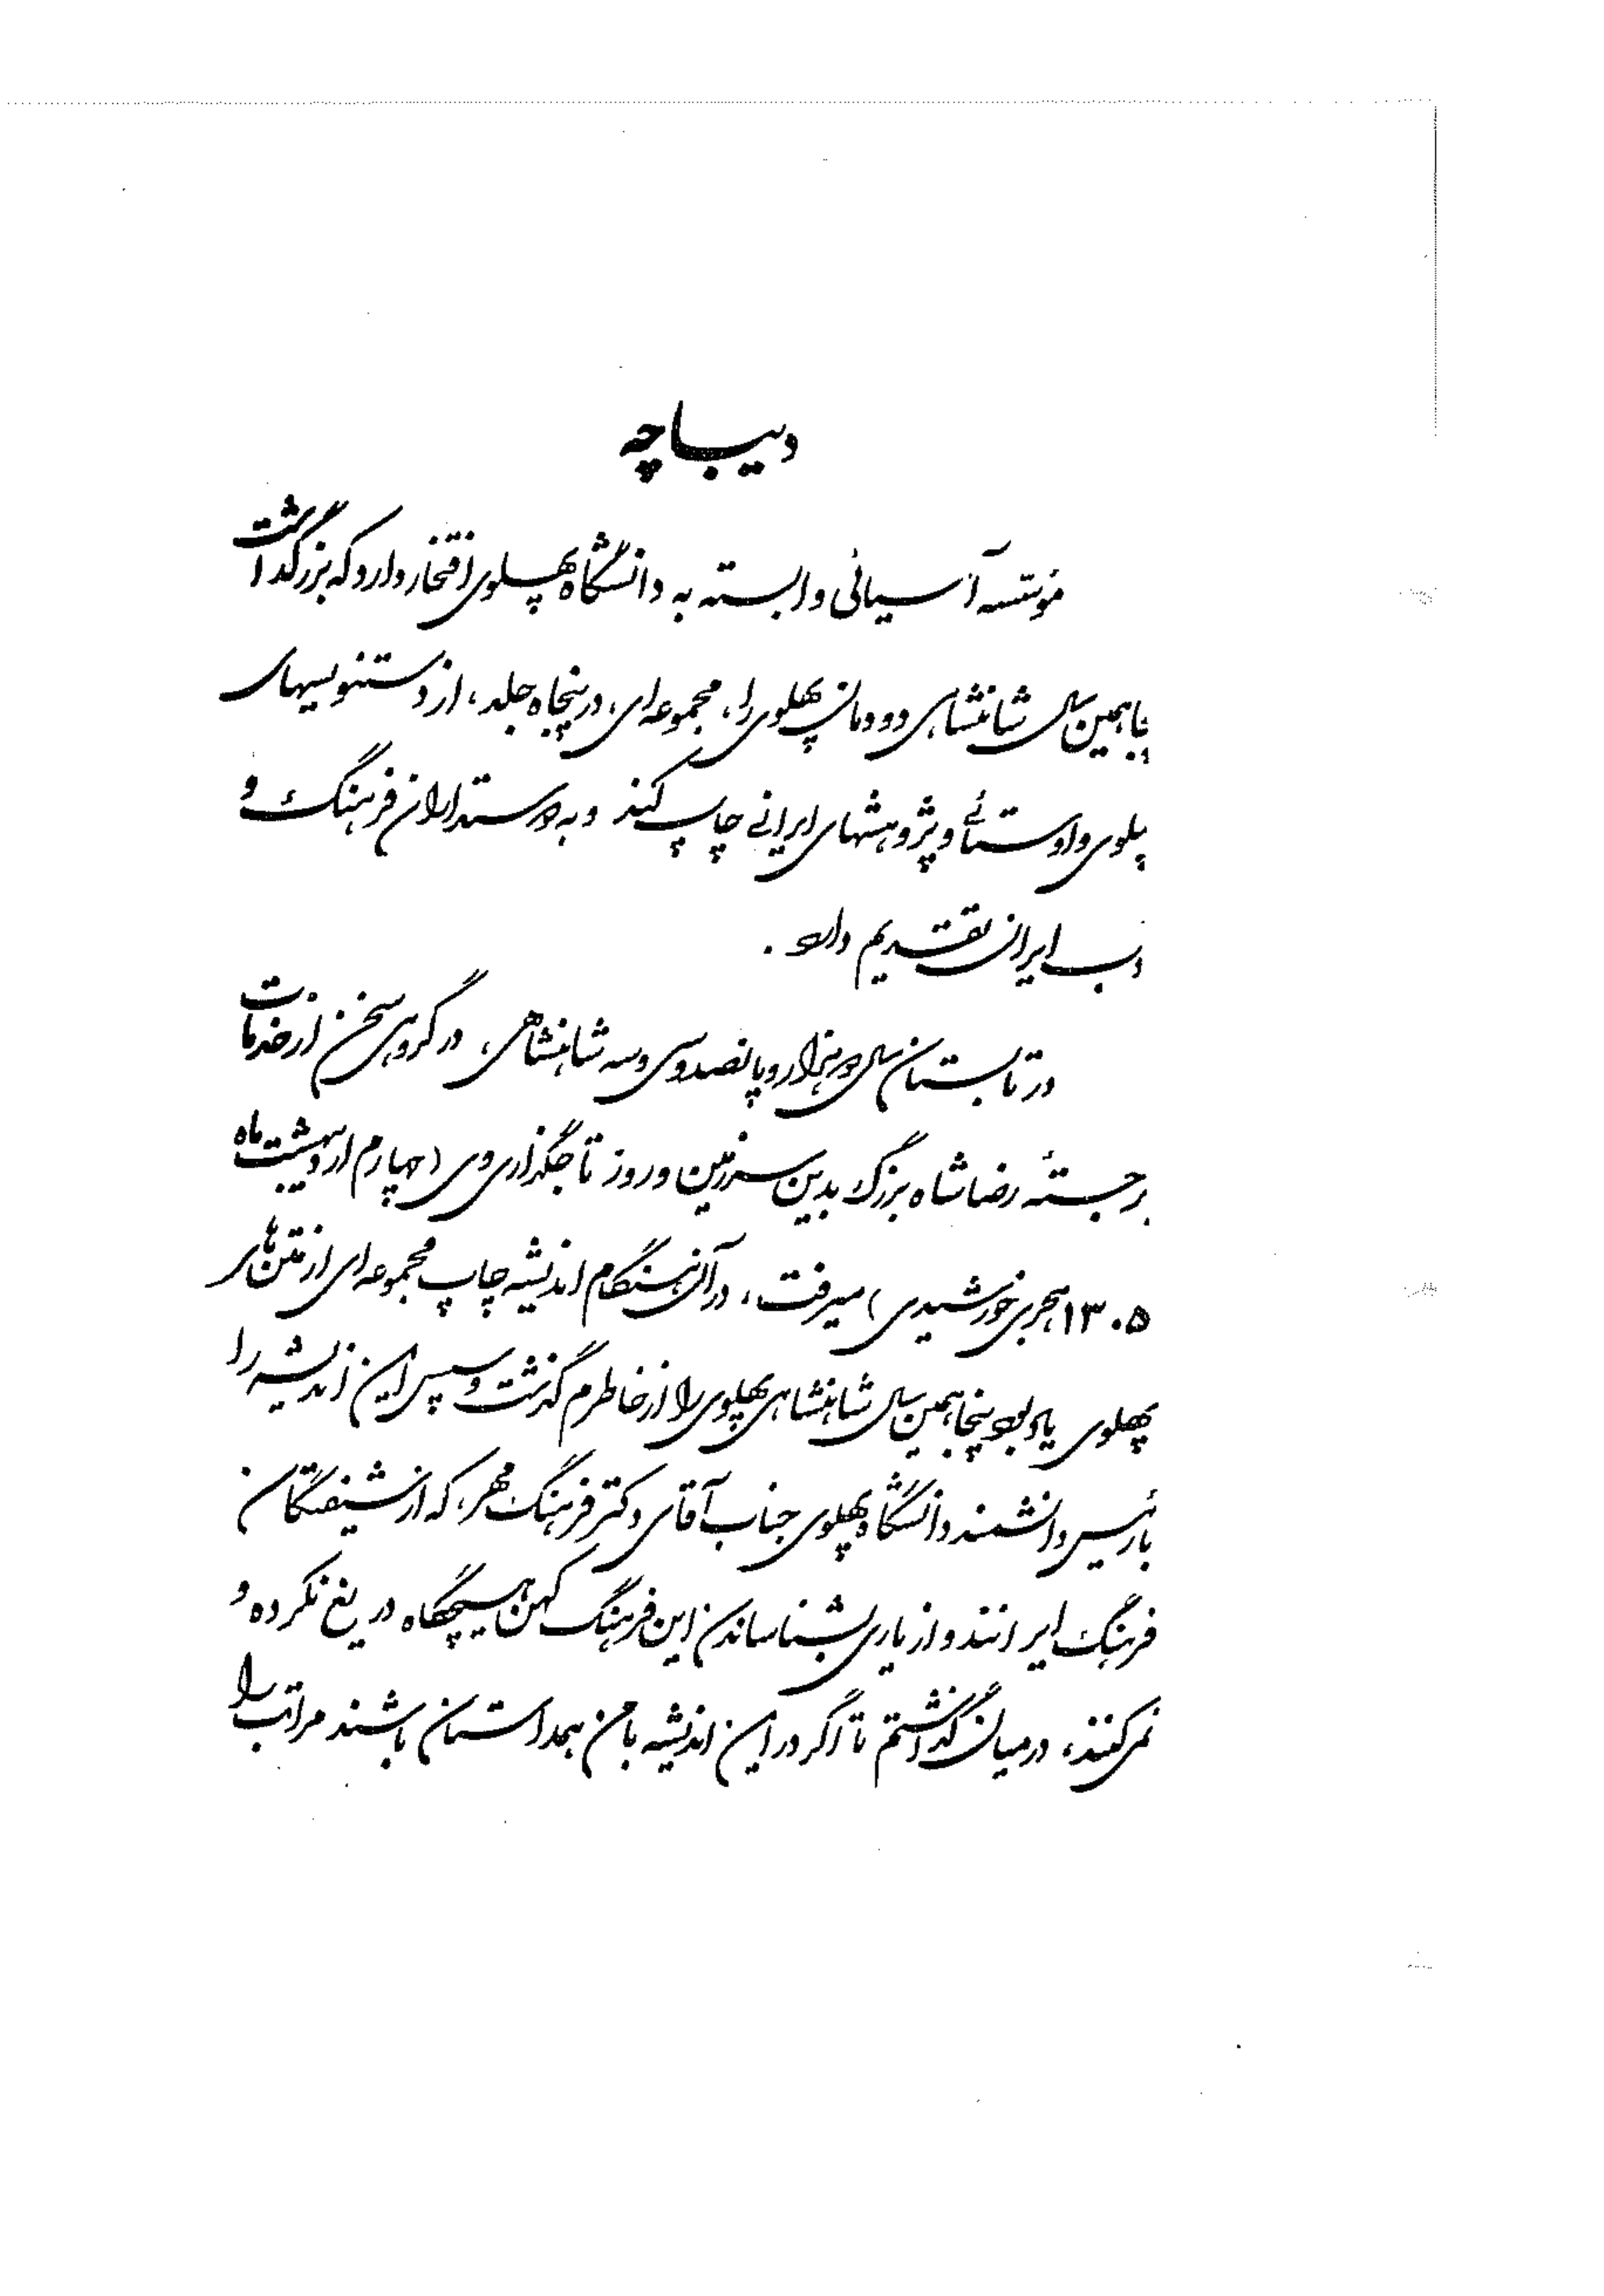 دیباچه
مؤسسه آسیائی وابسته به دانشگاه پهلوی افتخار دارد که بزرگداشت
پنجاهمین سال شاهنشاهی دودمان پهلوی را، مجموعه‌ای، در پنجاه جلد، از دستنویسهای
پهلوی و اوستائی و پژوهشهای ایرانی چاپ کند و به دوستداران فرهنگ و
ادب ایران تقدیم دارد.
در تابستان سال دو هزار و پانصد و سی و سه شاهنشاهی، در گروهی سخن از خدمات
برجستهٔ رضا شاه بزرگ بدین سرزمین و روز تاجگذاری وی (چهارم اردیبهشت ماه
۱۳۰۵ هجری خورشیدی) میرفت، در آن هنگام اندیشه چاپ مجموعه‌ای از متن‌های
پهلوی یادبود پنجاهمین سال شاهنشاهی پهلوی را از خاطرم گذشت و سپس این اندیشه را
با رئیس دانشمند دانشگاه پهلوی جناب آقای دکتر فرهنگ مهر، که از شیفتگان
فرهنگ ایرانند و از یاری بشناساندن این فرهنگ کهن هیچگاه دریغ نکرده و
نمی‌کنند، در میان گذاشتم تا اگر در این اندیشه با من همداستان باشند مراتب را